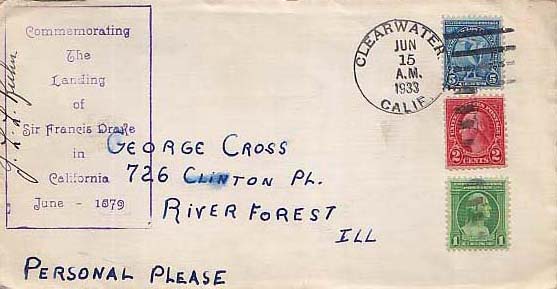 Commemorating
The
Landing
of
Sir Francis Drake
in
California
June - 1579
CLEARWATER
JUN
15
A.M.
1933
CALIF.
5 CENTS 5
2 CENTS 2
1 1
GEORGE CROSS
726 CLINTON PL.
RIVER FOREST
ILL
PERSONAL PLEASE